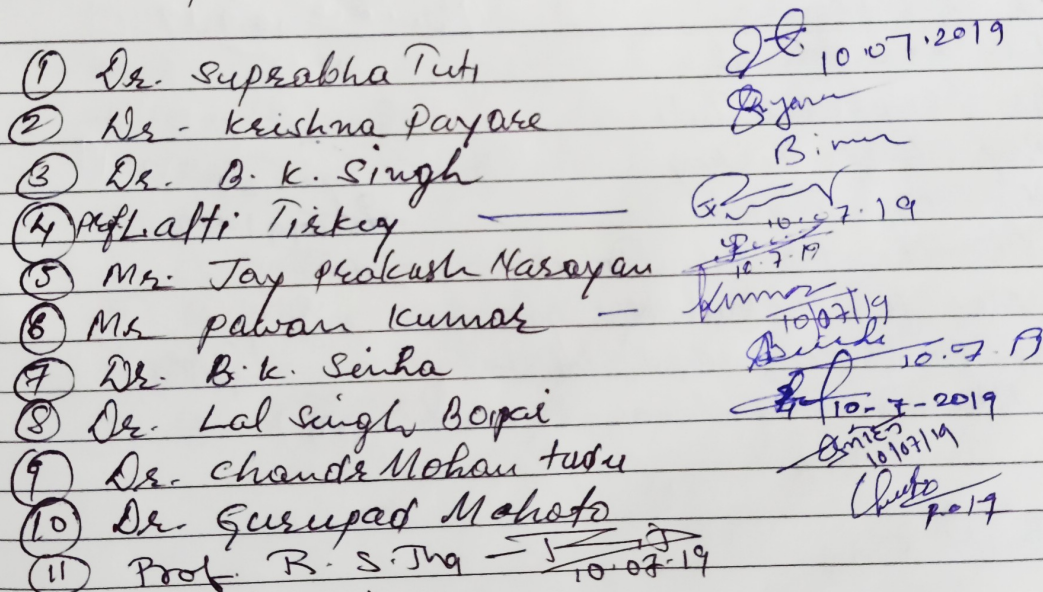 ① Dr. Suprabha Tuti 10.07.2019
② Dr. Krishna Payare
③ Dr. B. K. Singh
④ Prof Lalti Tirkey — 10.07.19
⑤ Mr. Jay Prakash Narayan 10.7.19
⑥ Mr Pawan Kumar — Kumar 10/07/19
⑦ Dr. B. K. Sinha 10.07.19
⑧ Dr. Lal Singh Boipai 10-7-2019
⑨ Dr. Chandr Mohan Tudu 10/07/19
⑩ Dr. Gurupad Mahato
⑪ Prof. R. S. Jha — 10.07.19